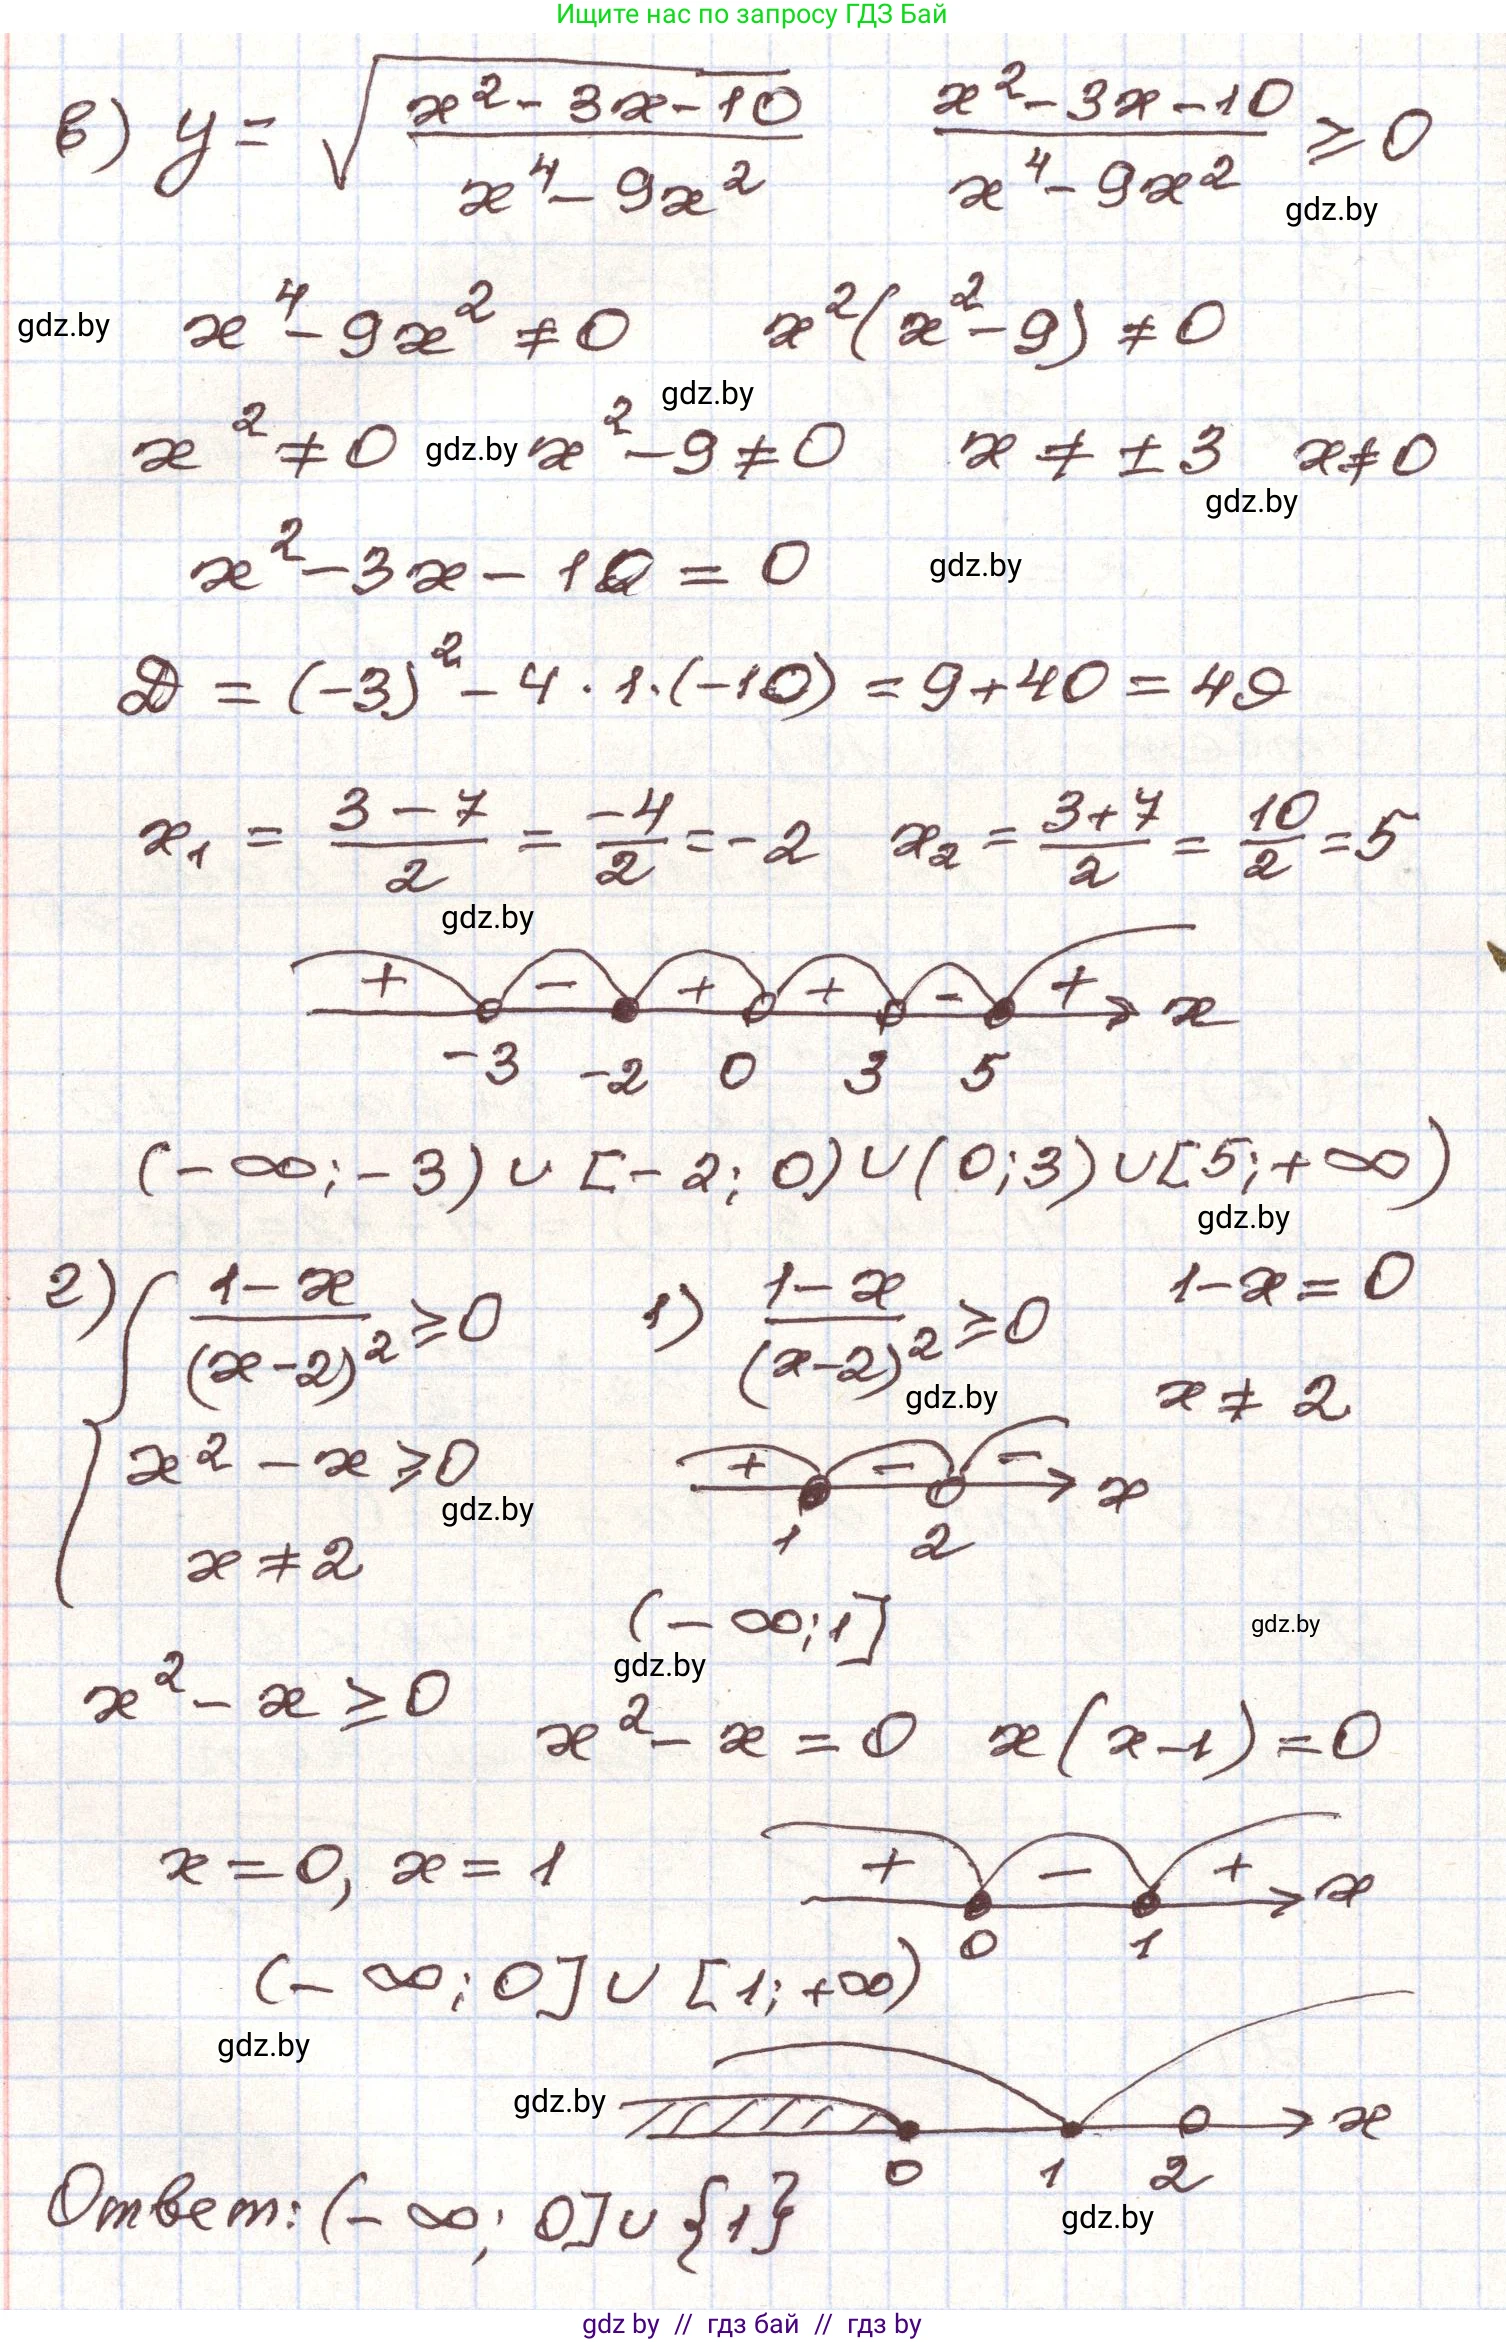 Ищите нас по запросу ГДЗ Бай
в) y = √((x² - 3x - 10)/(x⁴ - 9x²))   (x² - 3x - 10)/(x⁴ - 9x²) ≥ 0
gdz.by
gdz.by x⁴ - 9x² ≠ 0   x²(x² - 9) ≠ 0
gdz.by
x² ≠ 0 gdz.by x² - 9 ≠ 0   x ≠ ± 3   x ≠ 0
gdz.by
x² - 3x - 10 = 0   gdz.by
D = (-3)² - 4 · 1 · (-10) = 9 + 40 = 49
x₁ = (3 - 7)/2 = -4/2 = -2   x₂ = (3 + 7)/2 = 10/2 = 5
gdz.by
+ - + + - + x
-3 -2 0 3 5
(-∞; -3) ∪ [-2; 0) ∪ (0; 3) ∪ [5; +∞)
gdz.by
г) { (1 - x)/(x - 2)² ≥ 0   1) (1 - x)/(x - 2)² ≥ 0   1 - x = 0
gdz.by   x ≠ 2
x² - x ≥ 0   + - - x
gdz.by   1 2
x ≠ 2
(-∞; 1]   gdz.by
gdz.by
x² - x ≥ 0   x² - x = 0   x(x - 1) = 0
x = 0, x = 1   + - + x
0 1
(-∞; 0] ∪ [1; +∞)
gdz.by
gdz.by x
0 1 2
Ответ: (-∞; 0] ∪ {1}
gdz.by
gdz by // гдз бай // гдз by